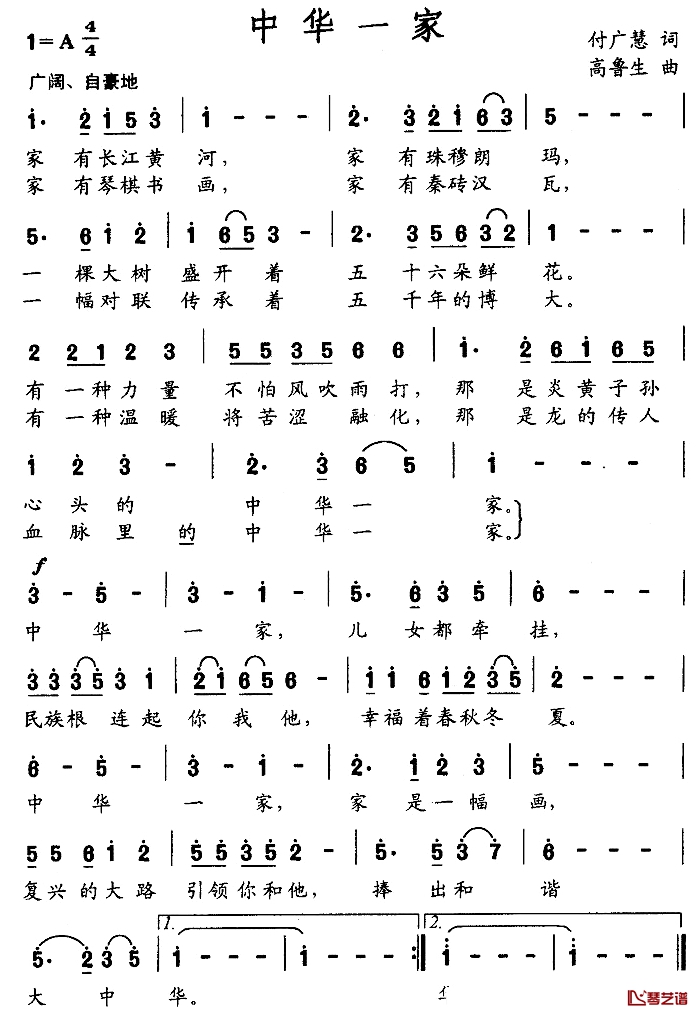 中华一家
1=A 4/4
付广慧 词
高鲁生 曲
广阔、自豪地
1· 2 1 5 3 | 1 - - - | 2· 3 2 1 6 3 | 5 - - - |
家 有长江黄 河, 家 有珠穆朗 玛,
家 有琴棋书 画, 家 有秦砖汉 瓦,
5· 6 1 2 | 1 6 5 3 - | 2· 3 5 6 3 2 | 1 - - - |
一 棵大树 盛开着 五 十六朵鲜 花。
一 幅对联 传承着 五 千年的博 大。
2 2 1 2 3 | 5 5 3 5 6 6 | 1· 2 6 1 6 5 |
有一种力量 不怕风吹雨打, 那 是炎黄子孙
有一种温暖 将苦涩 融化, 那 是龙的传人
1 2 3 - | 2· 3 6 5 | 1 - - - |
心头的 中 华一 家。
血脉里的 中 华一 家。
f
3 - 5 - | 3 - 1 - | 5· 6 3 5 | 6 - - - |
中 华 一 家, 儿 女都牵 挂,
3 3 3 5 3 1 | 2 1 6 5 6 - | 1 1 6 1 2 3 5 | 2 - - - |
民族根 连起 你我他, 幸福着春秋冬 夏。
6 - 5 - | 3 - 1 - | 2· 1 2 3 | 5 - - - |
中 华 一 家, 家 是一幅 画,
5 5 6 1 2 | 5 5 3 5 2 - | 5· 5 3 7 | 6 - - - |
复兴的大路 引领你和他, 捧 出和 谐
1. 2.
5· 2 3 5 | 1 - - - | 1 - - - :| 1 - - - | 1 - - - ‖
大 中 华。
琴艺谱